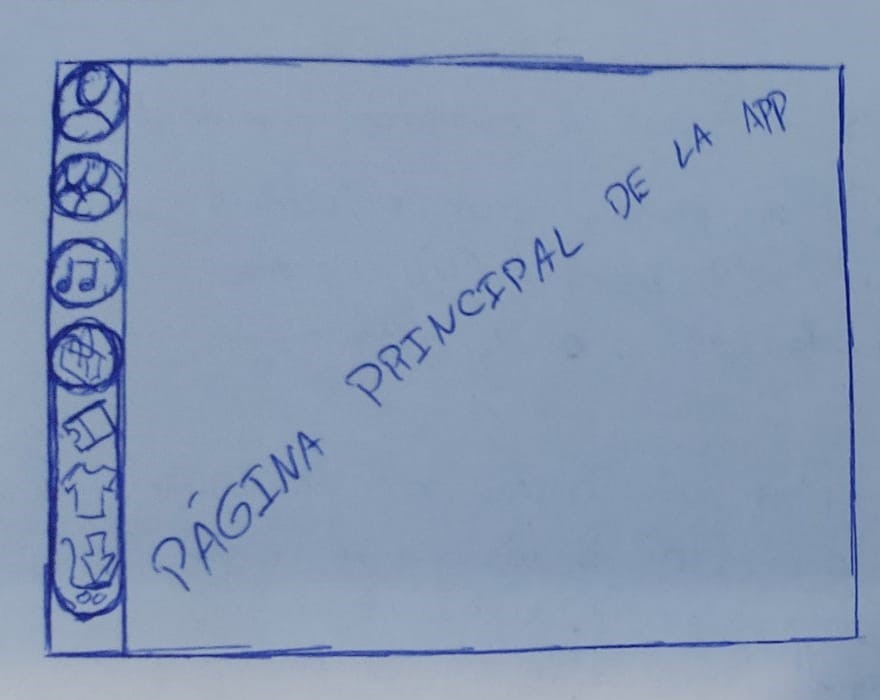 PÁGINA PRINCIPAL DE LA APP